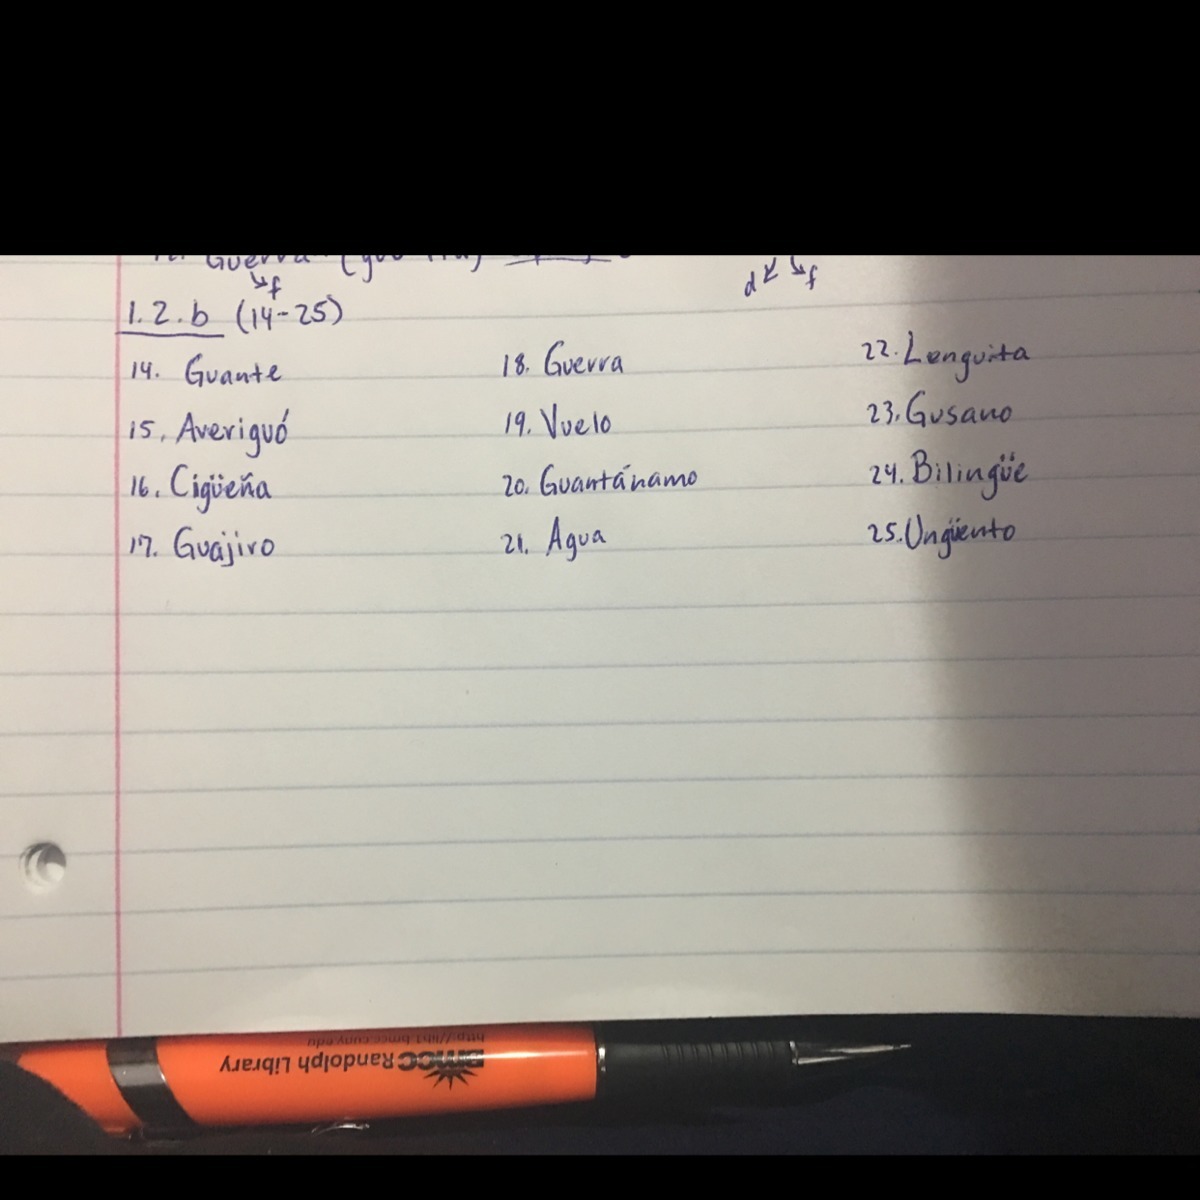 Guerra
f
d f
1.2.b (14-25)
14. Guante 18. Guerra 22. Lenguita
15. Averiguó 19. Vuelo 23. Gusano
16. Cigüeña 20. Guantánamo 24. Bilingüe
17. Guajiro 21. Agua 25. Ungüento
bmcc Randolph Library